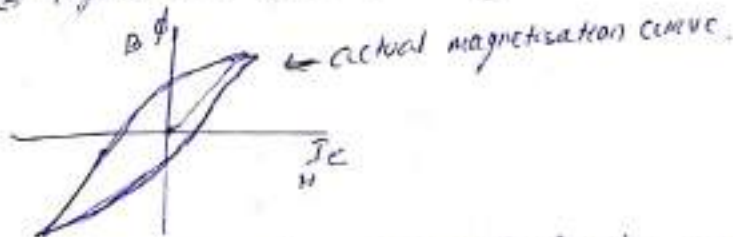 B φ
← actual magnetisation curve.
Ie
H